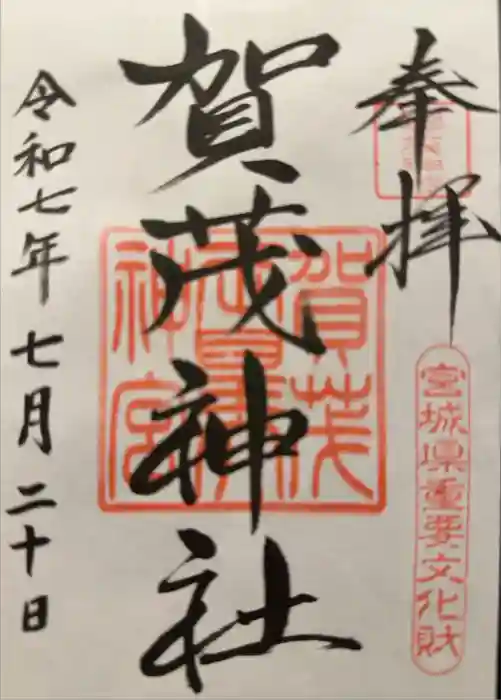 奉拝
宮城県重要文化財
賀茂神社
令和七年七月二十日